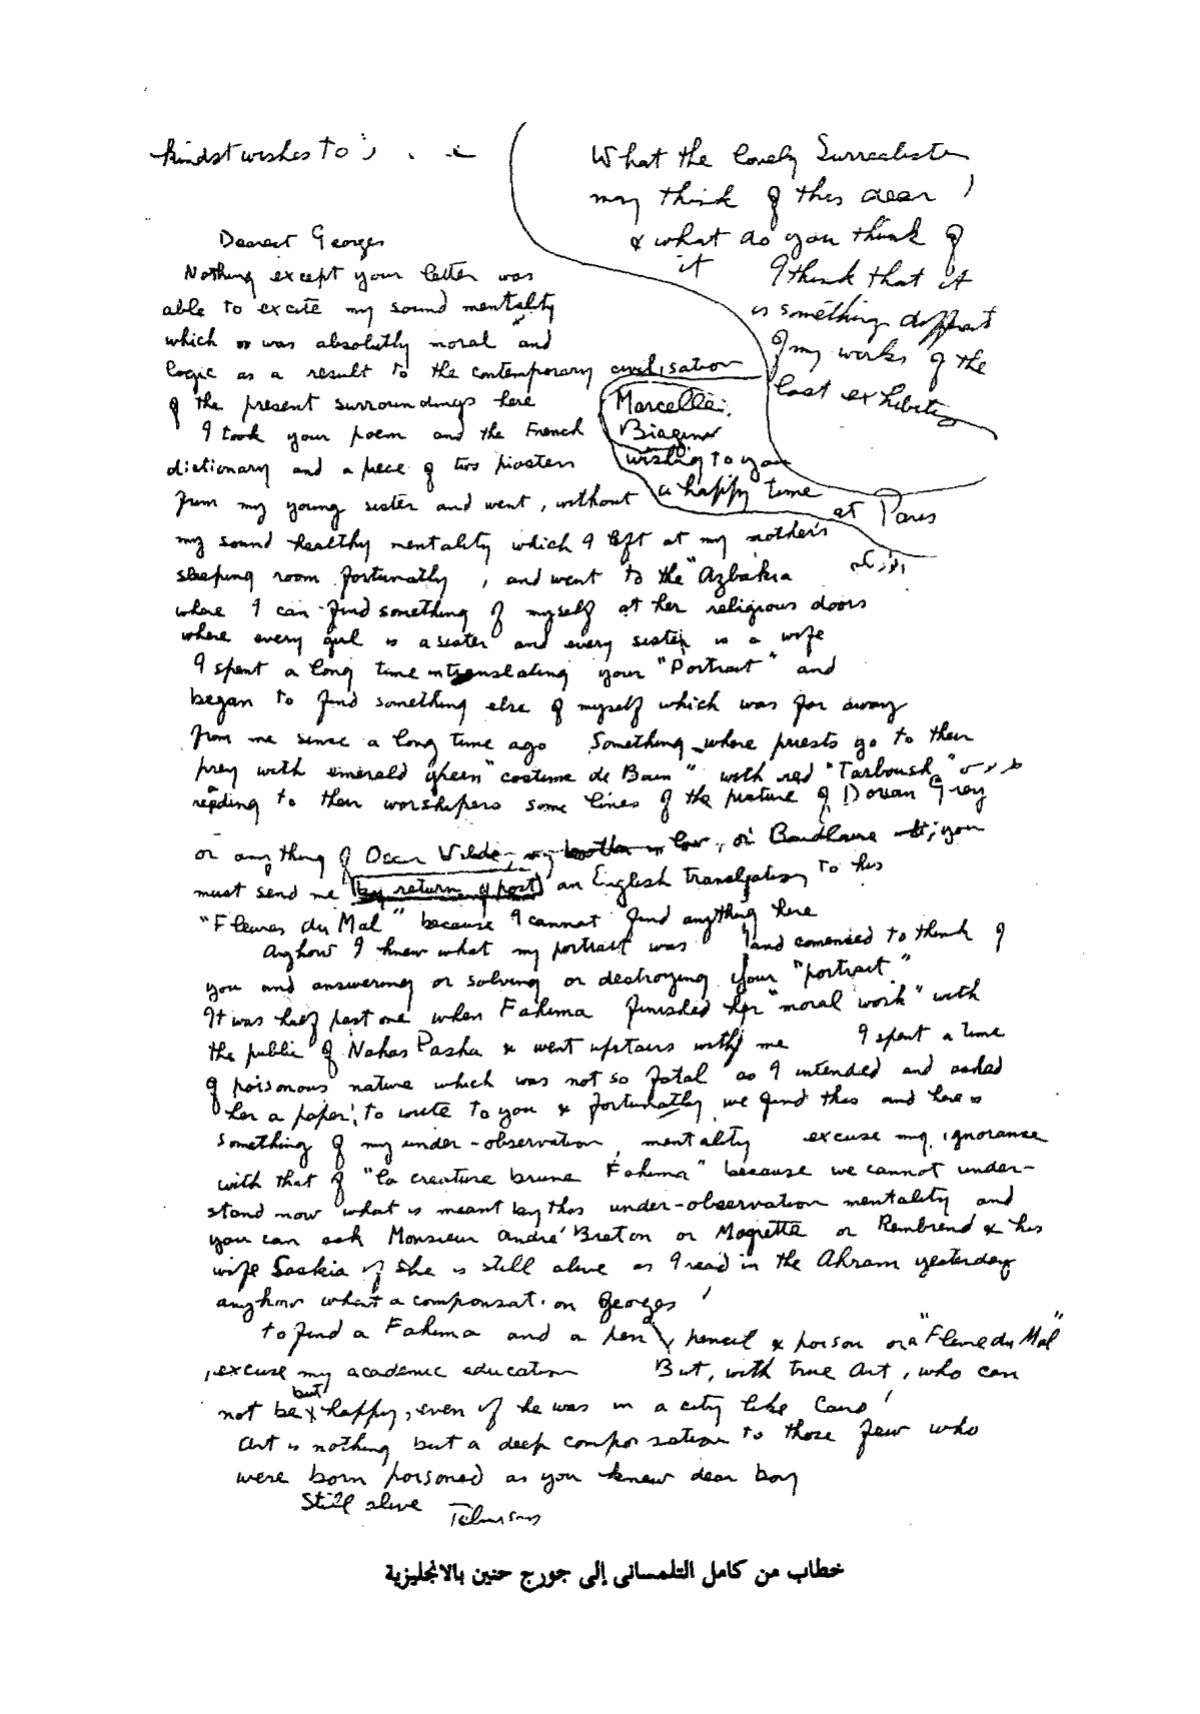 kindst wishes to
What the lovely Surrealists
may think of this dear !
& what do you think of
it I think that it
is something different
of my works of the
last exhibition
Dearest Georges
Nothing except your letter was
able to excite my sound mentality
which was absolutly moral and
logic as a result to the contemporary civilisation
of the present surroundings here
Marcelle
Biagini
wishing to you
a happy time
at Paris
I took your poem and the French
dictionary and a piece of two piasters
from my young sister and went, without
my sound healthy mentality which I left at my mother's
sleeping room fortunatly, and went to the "Azbakia
where I can find something of myself at her religious doors
where every girl is a sister and every sister is a wife
I spent a long time in translating your "Portrait" and
began to find something else of myself which was far away
from me since a long time ago Something where priests go to their
prey with emerald gheen "costume de Bain" with red "Tarboush"
reading to their worshipers some lines of the picture of Dorian Grey
or any thing of Oscar Wilde, my brother in low, or Baudlaire you
must send me by return of post an English Translation to his
"Fleures du Mal" because I cannot find anything here
Anyhow I knew what my portrait was and comenced to think of
you and answering or solving or destroying your "portrait"
It was half past one when Fahima finished her "moral work" with
the public of Nahas Pasha & went upstairs with me I spent a time
of poisonous nature which was not so fatal as I intended and asked
her a paper, to write to you & fortunatly we find this and here is
something of my under-observation mentality excuse my ignorance
with that of "la creature brune Fahima" because we cannot under-
stand now what is meant by this under-observation mentality and
you can ask Monsieur André Breton or Magrette or Rembrend & his
wife Saskia if she is still alive as I read in the Ahram yesterday
anyhow what a compensation Georges !
to find a Fahima and a pen pencil & poison or a "Fleure du Mal"
, excuse my academic education But, with true Art, who can
not be but happy, even if he was in a city like Cairo !
Art is nothing but a deep compensation to those few who
were born poisoned as you knew dear boy
Still alive Telmisany
خطاب من كامل التلمسانى إلى جورج حنين بالانجليزية